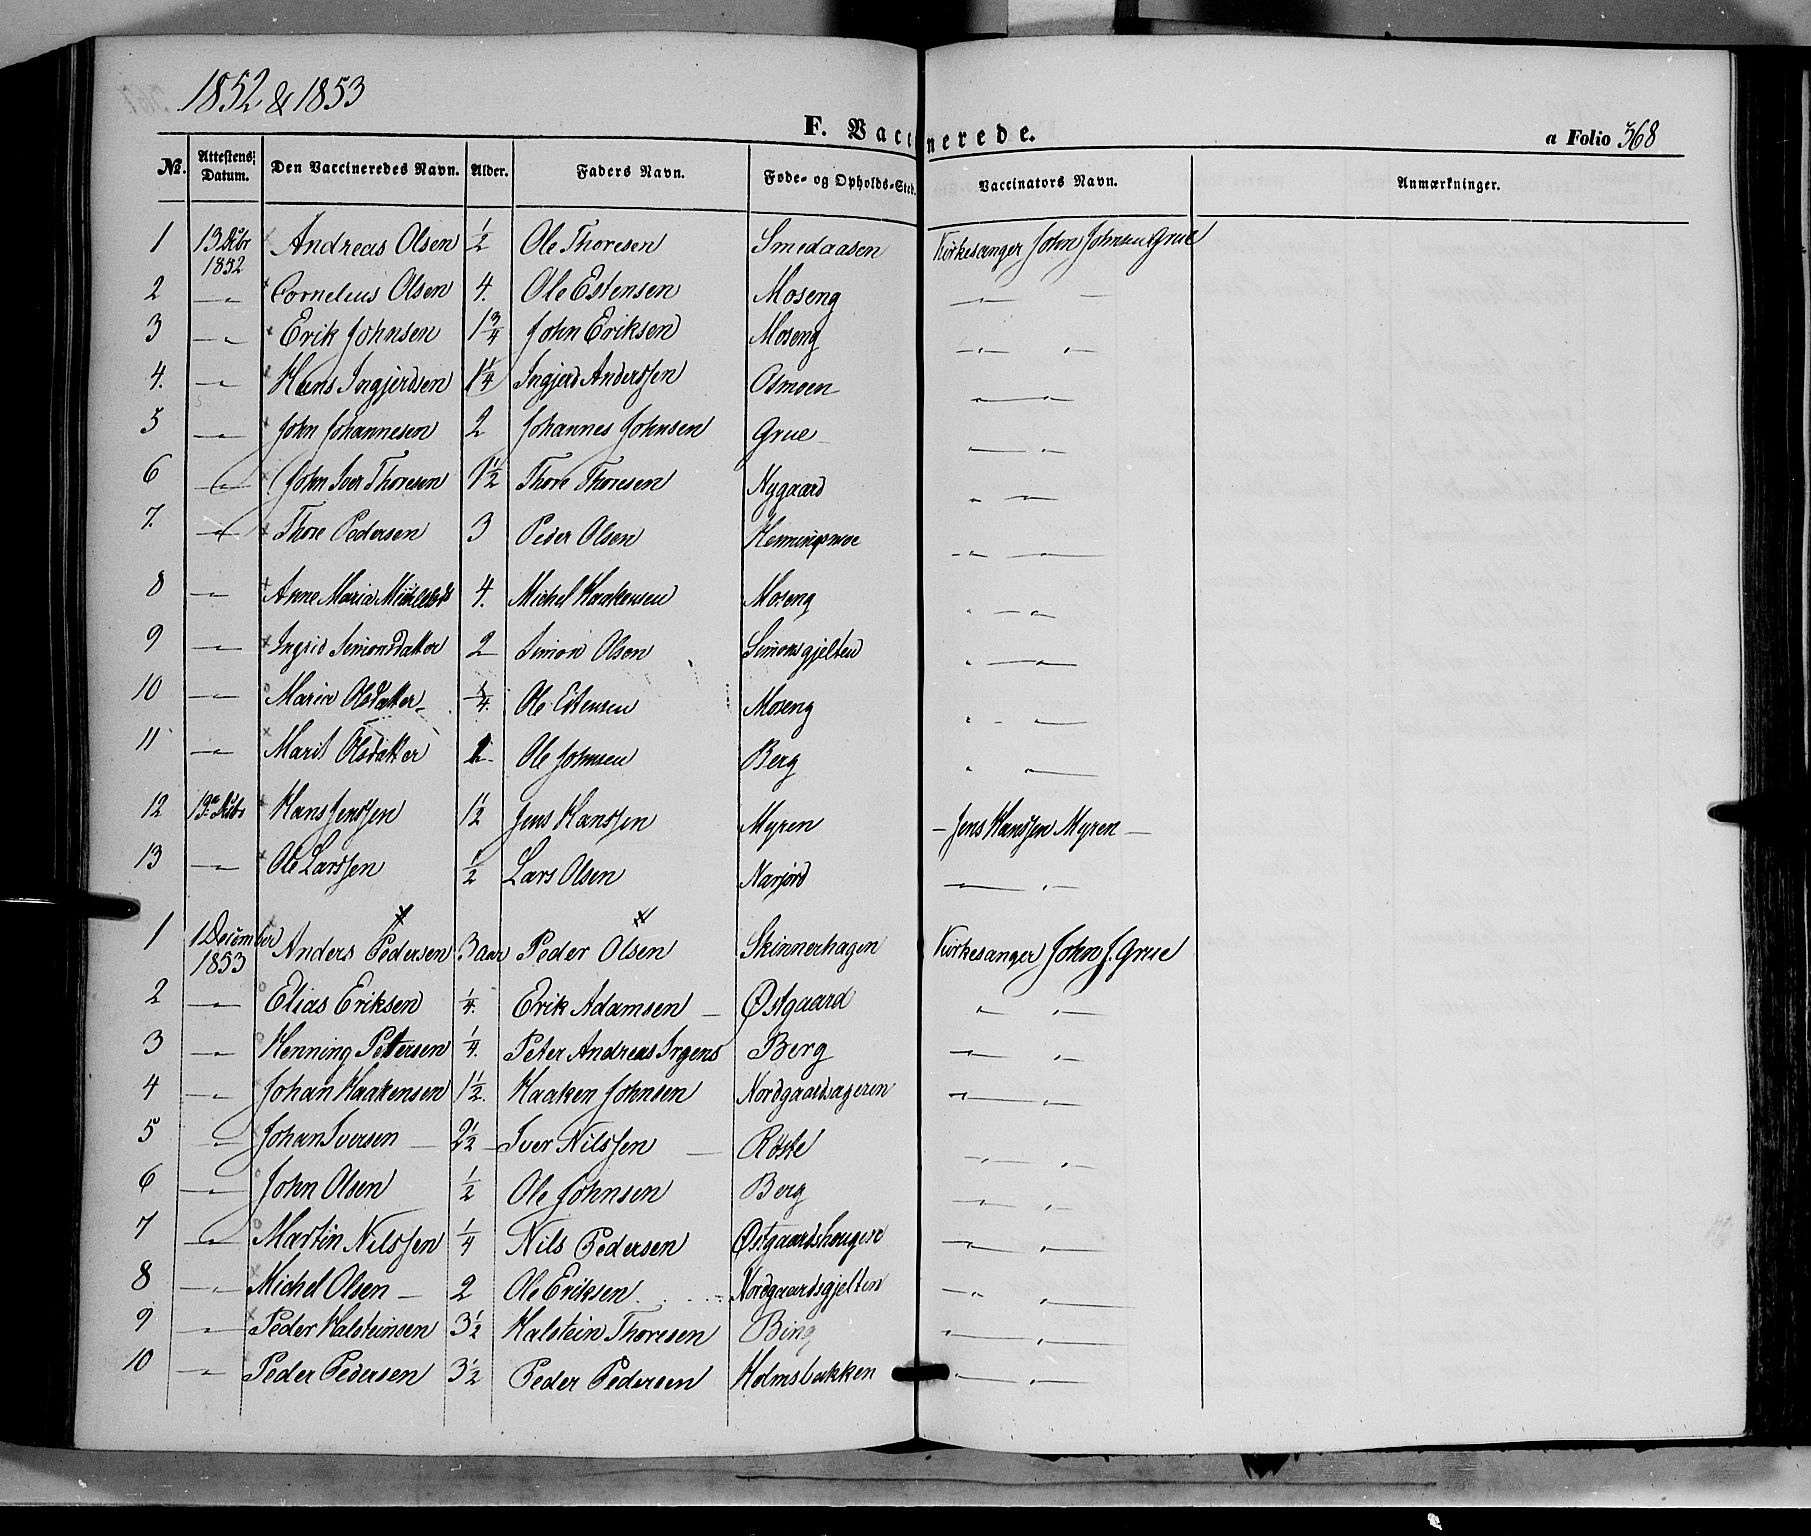 1852 & 1853
F. Vaccinerede.
a Folio 368
No. Attestens Datum. Den Vaccineredes Navn. Alder. Faders Navn. Føde- og Opholds-Sted. Vaccinators Navn. Anmærkninger.
1 13 Decbr 1852 Andreas Olsen 1/2 Ole Thoresen Smedaasen Kirkesanger John Johnsen Grue
2 —"— Cornelius Olsen 4. Ole Estensen Moseng —"—
3 —"— Erik Johnsen 1 3/4 John Eriksen Moseng —"— "—
4. —"— Hans Ingjerdsen 1 1/4 Ingjerd Anderssen Osmoen —"—"—
5 —"— John Johannesen 2 Johannes Johnsen Grue —"— "—
6 —"— John Iver Thoresen 1 1/2 Thore Thoresen Nygaard " —"—
7. —"— Thore Pedersen 3 Peder Olsen Henningsmoe —"— "—
8 —"— Anne Maria Michelsd 4. Michel Haakensen Moseng " —"—
9 —"— Ingrid Simonsdatter 2 Simon Olsen Simonsgjelten " —"—
10 —"— Maria Olsdatter 1/4. Ole Estensen Moseng " —"—
11 —"— Marit Olsdatter Ole Johnsen Berg " —"—
12 Decbr Hans Jenssen 1 1/2 Jens Hanssen Myren — Jens Hanssen Myren —
13 —"— Ole Larssen 1/2 Lars Olsen Narjord —"— "—
1 1 December 1853 Anders Pedersen 3 aar Peder Olsen Skinnerhagen Kirkesanger John J. Grue
2 —"— Elias Eriksen 1/4. Erik Adamsen — Østgaard "— "—
3 —"— Henning Petersen 1/4. Peter Andreas Irgens Berg —"— "—
4 —"— Johan Haakensen 1 1/2. Haaken Johnsen Nordgaardsageren —"— "—
5 —"— Johan Iversen — 2 1/2 — Iver Nilssen — Røste —"— "—
6 —"— John Olsen 1/2 Ole Johnsen Berg —"— "—
7 —"— Martin Nilssen 1/4 Nils Pedersen Østgaardshougen —"— "—
8 —"— Michel Olsen — 2 Ole Eriksen Nordgaardsgjelten —"— "—
9 —"— Peder Halsteinsen 3 1/2 Halstein Thoresen Bing "— "—
10 —"— Peder Pedersen 3 1/2 Peder Pedersen Holmsbakken "— "—